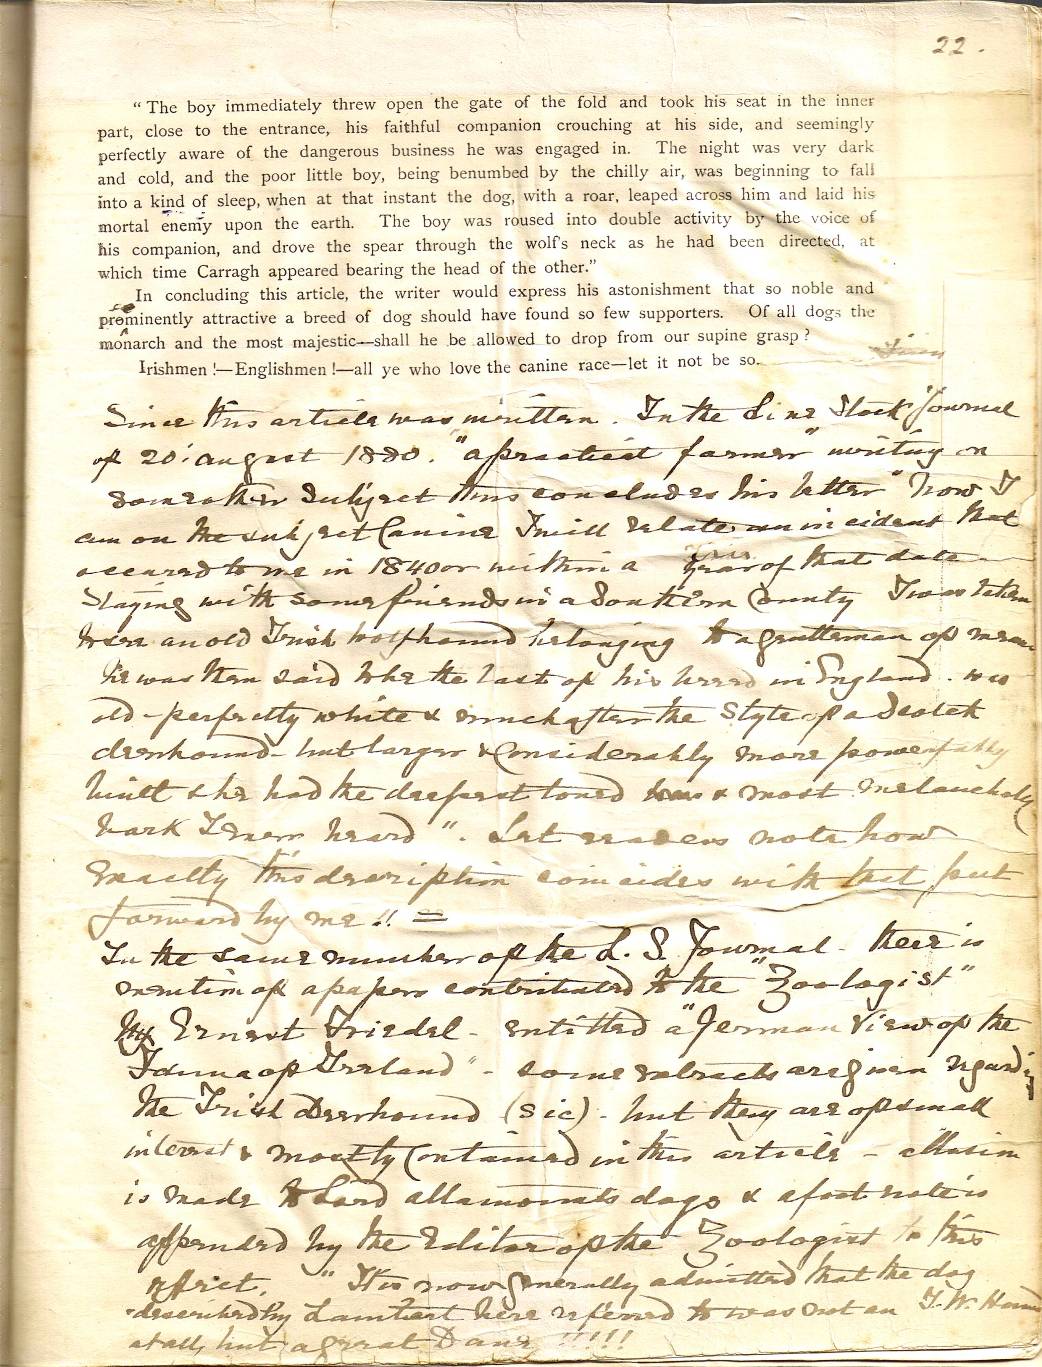 22.
"The boy immediately threw open the gate of the fold and took his seat in the inner
part, close to the entrance, his faithful companion crouching at his side, and seemingly
perfectly aware of the dangerous business he was engaged in. The night was very dark
and cold, and the poor little boy, being benumbed by the chilly air, was beginning to fall
into a kind of sleep, when at that instant the dog, with a roar, leaped across him and laid his
mortal enemy upon the earth. The boy was roused into double activity by the voice of
his companion, and drove the spear through the wolf's neck as he had been directed, at
which time Carragh appeared bearing the head of the other."
In concluding this article, the writer would express his astonishment that so noble and
prominently attractive a breed of dog should have found so few supporters. Of all dogs the
monarch and the most majestic—shall he be allowed to drop from our supine grasp?
Irishmen!—Englishmen!—all ye who love the canine race—let it not be so.
Since this article was written. In the Live Stock Journal
of 20. august 1880. "a practical farmer" writing on
some other subject thus concludes his letter "now I
am on the subject Canine I will relate an incident that
occured to me in 1840 or within a year of that date
Staying with some friends in a Southern County I was taken
to see an old Irish wolfhound belonging to a gentleman of
he was then said to be the last of his breed in England. was
old - perfectly white & much after the style of a Scotch
deerhound - but larger & Considerably more powerfully
built & he had the deepest toned & most melancholy
bark I ever heard". Let readers note how
exactly this description coincides with that put
forward by me !! =
In the same number of the L. S. Journal - there is
mention of a papers contributed to the "Zoologist"
by Ernest Friedel - entitled a "German View of the
Fauna of Ireland" - some extracts are given regarding
the Irish Deerhound (sic) - but they are of small
interest & mostly Contained in this article - allusion
is made to Lord altamonts dogs & a foot note is
appended by the Editor of the Zoologist to this
effect, "It is now generally admitted that the dog
described by Lambert here referred to was not an I. W. Hound
at all, but a great Dane !!!!!